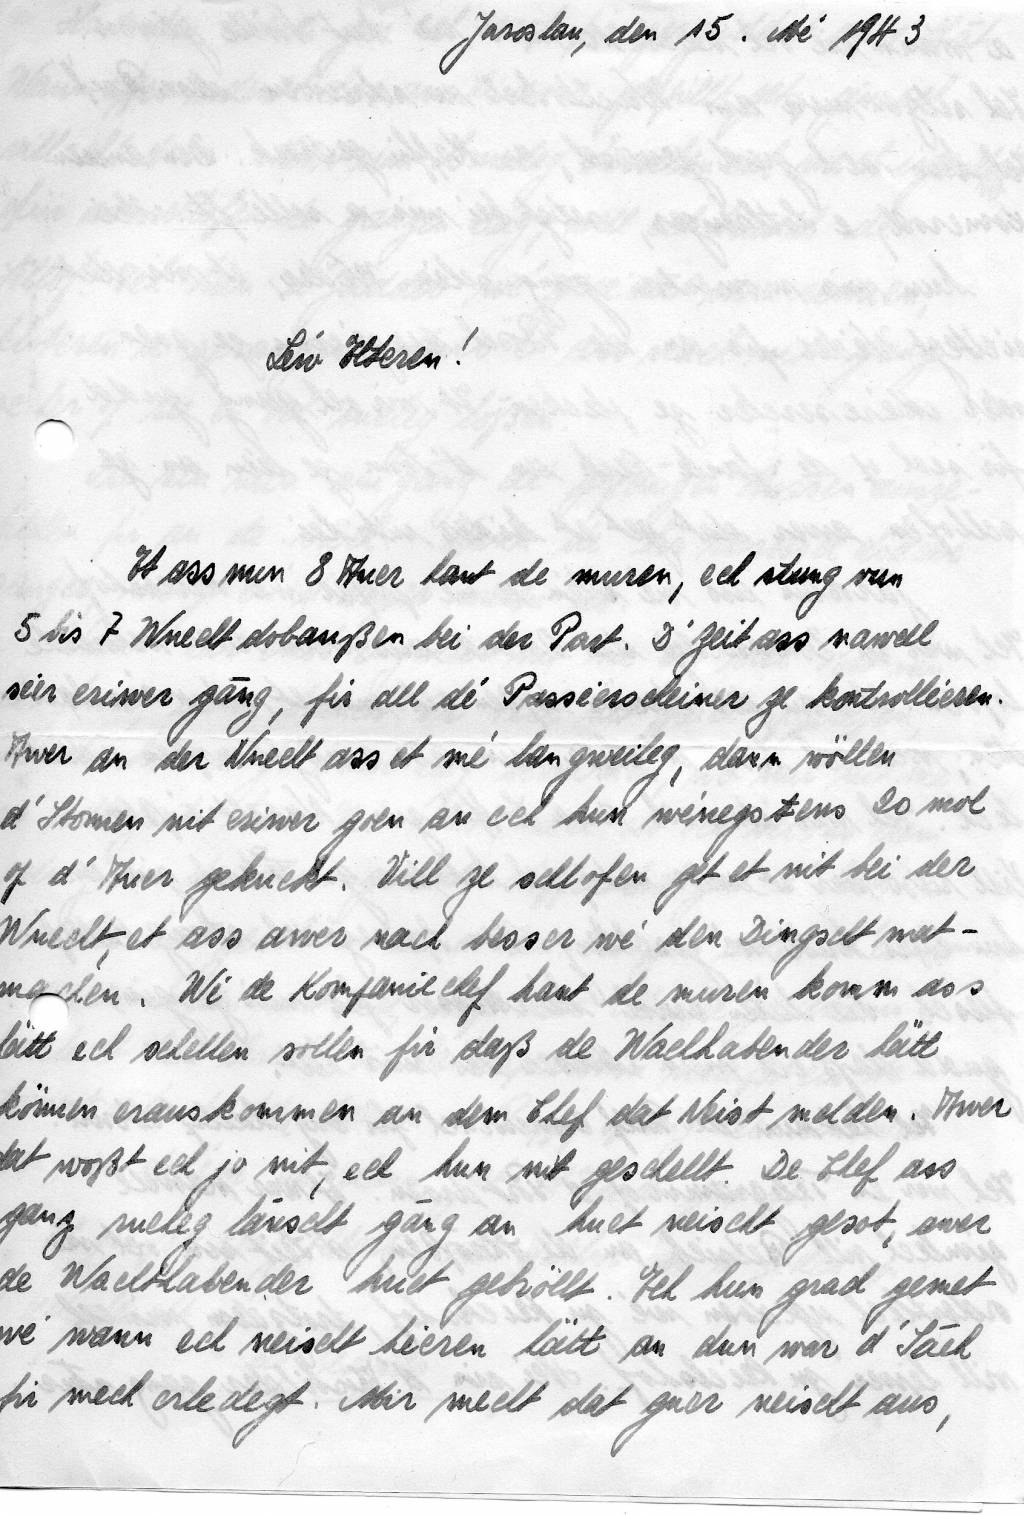 Jaroslau, den 15. Mé 1943
Léiv Elteren!
Et ass nun 8 Auer haut de muren, ech stung vun
5 bis 7 Wuecht dobaußen bei der Part. D'Zeit ass nawell
séier eriwer gâng, fir all dé Passéierscheiner ze kontrolléieren.
Awer an der Nuecht ass et mé langweileg, dann wöllen
d'Stonnen nit eriwer goen an ech hun wéinegstens 20 mol
of d'Auer gekuckt. Vill ze schlofen gët et nit bei der
Wuecht, et ass awer nach besser wé den Dingscht mat-
machen. Wé de Kompaniechef haut de muren komm ass
hätt ech schellen sollen fir daß de Wachhabender hätt
können erauskommen an dem Chef dat Neist melden. Awer
dat woßt ech jo nit, ech hun nit geschellt. De Chef ass
ganz rueheg lânscht gâng an huet neischt gesot, awer
de Wachthabender huet gebröllt. Ech hun grad gemet
wé wann ech neischt héieren hätt an dun war d'Sâch
fir mech erledegt. Mir mecht dat guer neischt aus,